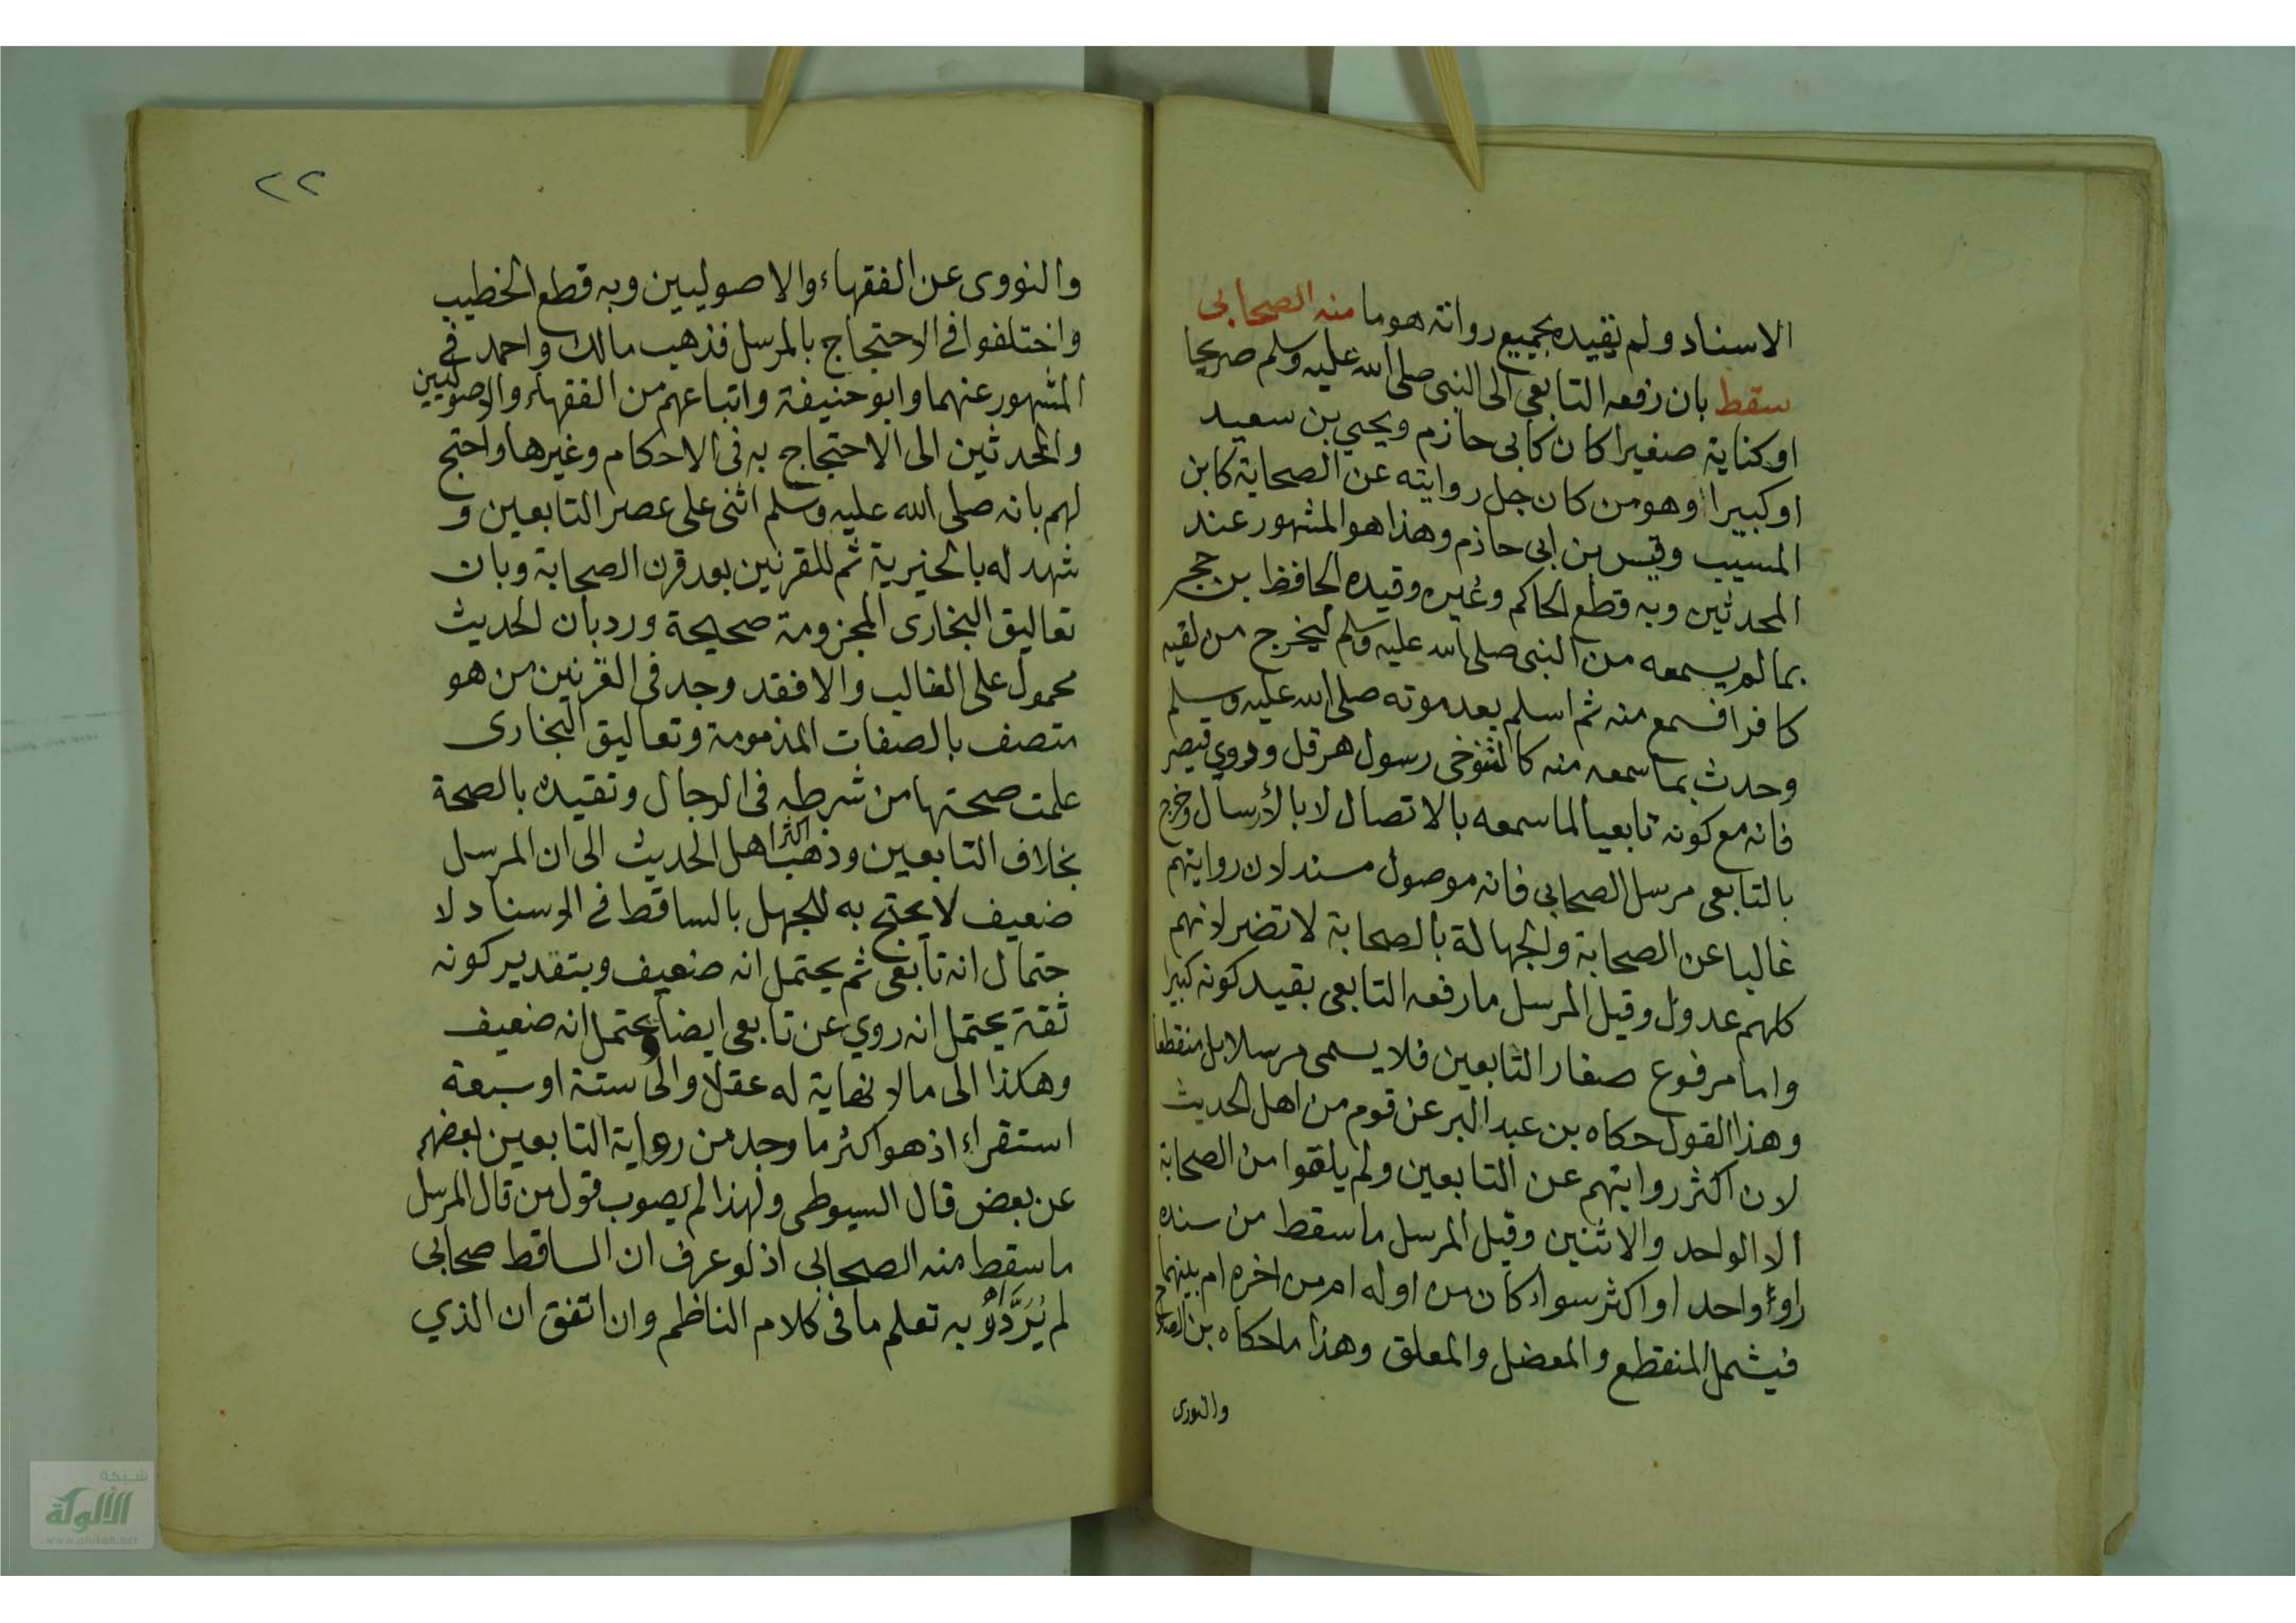 الاسناد ولم يقيده بجميع رواته هو وما منه الصحابى
سقط بان رفعه التابعي الى النبى صلى الله عليه وسلم صريحا
او كناية صغيرا كان كابى حازم ويحيي بن سعيد
او كبيرا وهو من كان جل روايته عن الصحابة كابن
المسيب وقيس بن ابى حازم وهذا هو المشهور عند
المحدثين وبه قطع الحاكم وغيره وقيده الحافظ بن حجر
بما لم يسمعه من النبى صلى الله عليه وسلم ليخرج من لقيه
كافرا فسمع منه ثم اسلم بعد موته صلى الله عليه وسلم
وحدث بما سمعه منه كالتنوخى رسول هرقل وروي قيصر
فانه مع كونه تابعيا لما سمعه بالاتصال لا بالأرسال وخرج
بالتابعى مرسل الصحابى فانه موصول مسند لان روايتهم
غالبا عن الصحابة والجهالة بالصحابة لا تضر لانهم
كلهم عدول وقيل المرسل ما رفعه التابعى بقيد كونه كبيرا
واما مرفوع صغار التابعين فلا يسمى مرسلا بل منقطعا
وهذا القول حكاه بن عبد البر عن قوم من اهل الحديث
لان اكثر روايتهم عن التابعين ولم يلقوا من الصحابة
الا الواحد والاثنين وقيل المرسل ما سقط من سنده
راو واحد او اكثر سواء كان من اوله ام من اخره ام بينهما
فيشمل المنقطع والمعضل والمعلق وهذا ما حكاه بن
والنووى
٢٢
والنووى عن الفقهاء والاصوليين وبه قطع الخطيب
واختلفوا فى الاحتجاج بالمرسل فذهب مالك واحمد فى
المشهور عنهما وابو حنيفة واتباعهم من الفقهاء والاصوليين
والمحدثين الى الاحتجاج به فى الاحكام وغيرها واحتج
لهم بانه صلى الله عليه وسلم اثنى على عصر التابعين و
شهد له بالخيرية ثم للقرنين بعد قرن الصحابة وبان
تعاليق البخارى المجزومة صحيحة ورد بان الحديث
محمول على الغالب والا فقد وجد فى القرنين من هو
متصف بالصفات المذمومة وتعاليق البخارى
علمت صحتها من شرطه فى الرجال وتقيده بالصحة
بخلاف التابعين وذهب اكثر اهل الحديث الى ان المرسل
ضعيف لا يحتج به للجهل بالساقط فى الاسناد لا
حتمال انه تابعى ثم يحتمل انه ضعيف وبتقدير كونه
ثقة يحتمل انه روي عن تابعى ايضا يحتمل انه ضعيف
وهكذا الى مالا نهاية له عقلا والى ستة او سبعة
استقراء اذ هو اكثر ما وجد من رواية التابعين بعضهم
عن بعض قال السيوطى ولهذا لم يصوب قول من قال المرسل
ما سقط منه الصحابى اذ لو عرف ان الساقط صحابى
لم يُرَدَّ به تعلم ما فى كلام الناظم وان اتفق ان الذي
شبكة
الألوكة
www.alukah.net